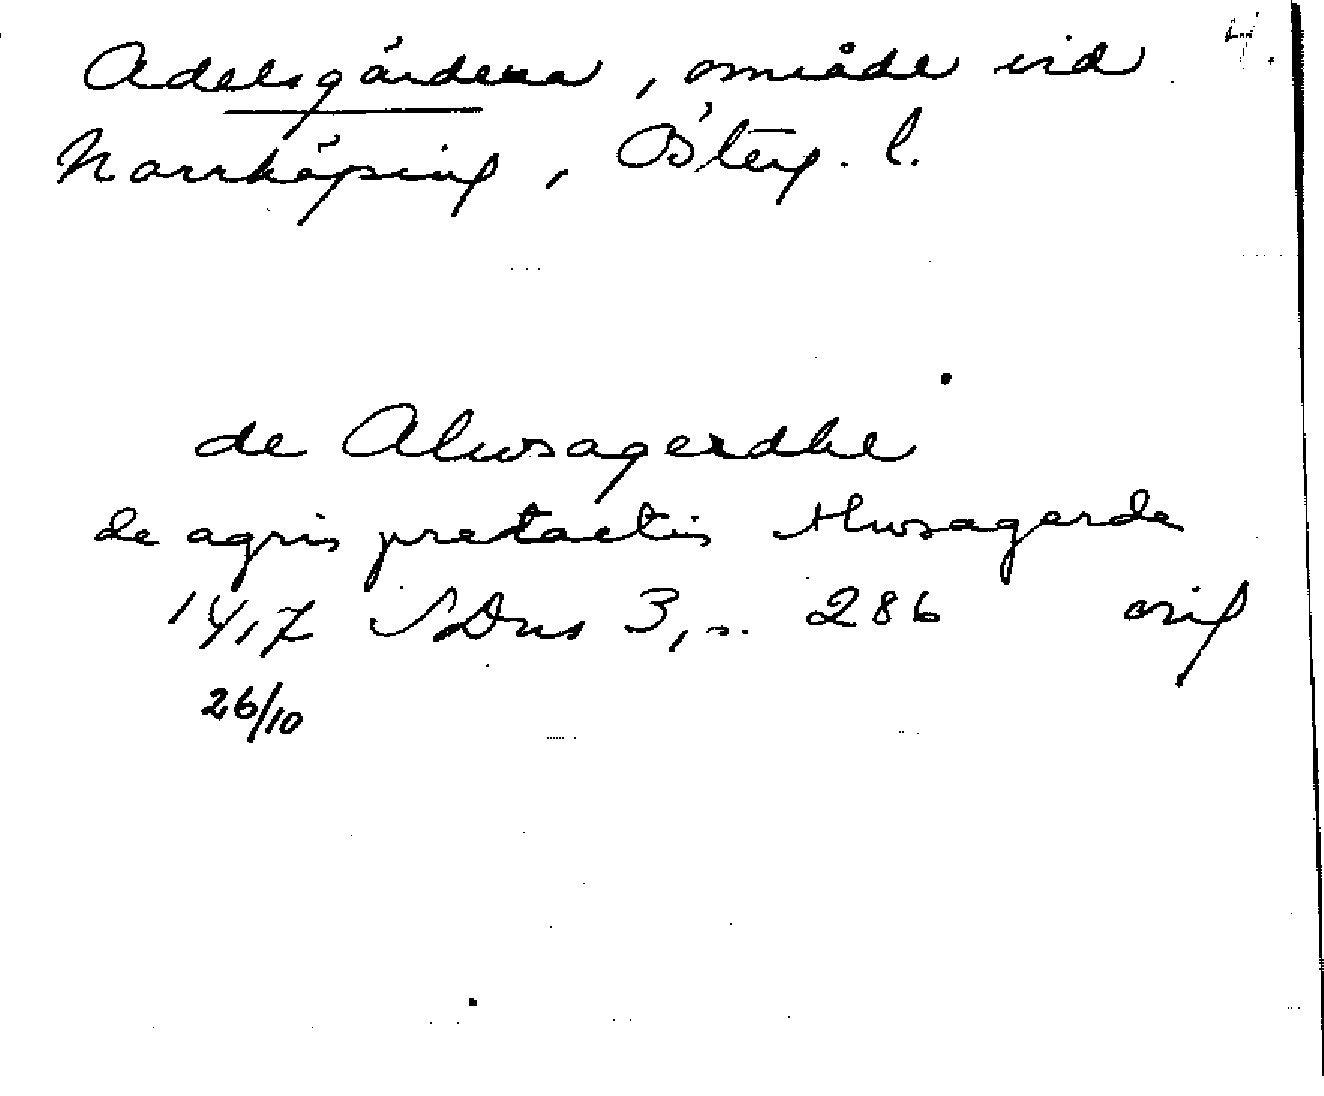 Adelsgärdena, område vid 4.
Norrköping, Österg. l.
de Alwsagerdhe
de agris pretactis Alwsagerde
1417 SDns 3, s. 286 orig
26/10